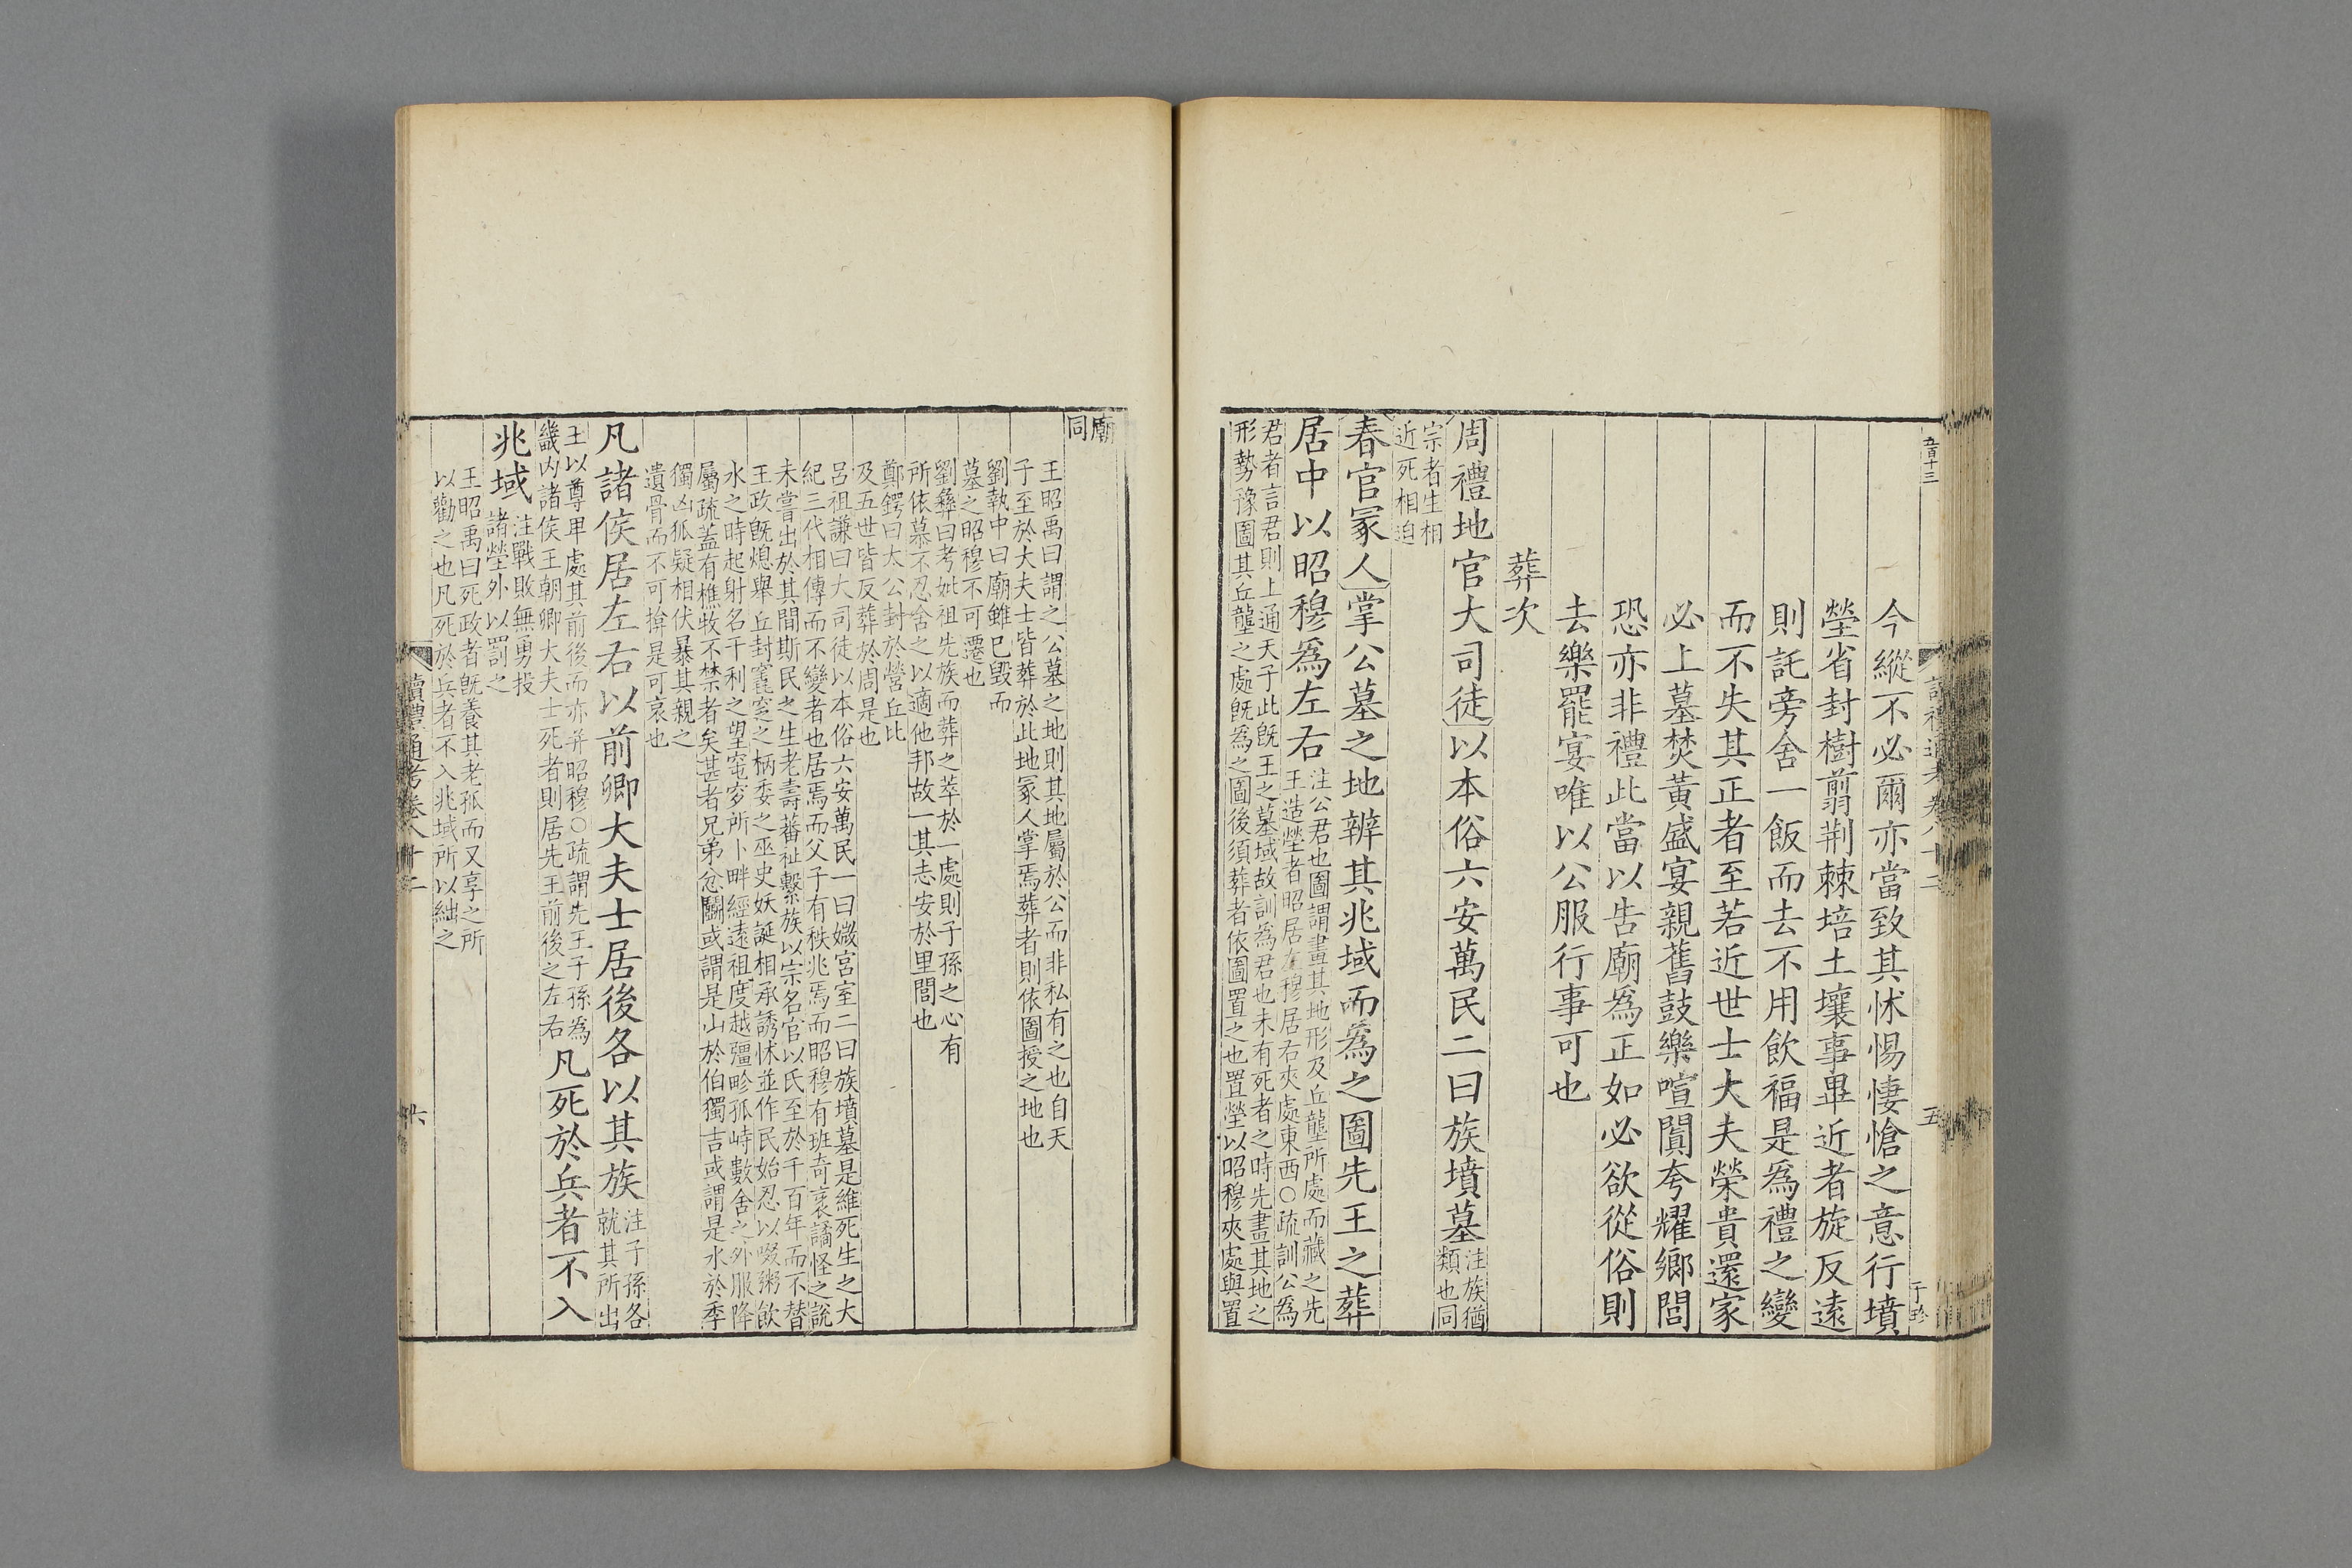 五百十三
讀禮通考卷八十二
五
于珍
今縱不必爾亦當致其怵惕悽愴之意行墳
塋省封樹翦荆棘培土壤事畢近者旋反遠
則託旁舍一飯而去不用飲福是爲禮之變
而不失其正者至若近世士大夫榮貴還家
必上墓焚黃盛宴親舊鼓樂喧闐夸耀鄉閭
恐亦非禮此當以告廟爲正如必欲從俗則
去樂罷宴唯以公服行事可也
葬次
周禮地官大司徒以本俗六安萬民二曰族墳墓
注族猶
類也同
宗者生相
近死相迫
春官冢人掌公墓之地辨其兆域而爲之圖先王之葬
居中以昭穆爲左右
注公君也圖謂畫其地形及丘壟所處而藏之先
王造塋者昭居左穆居右夾處東西○疏訓公爲
君者言君則上通天子此旣王之墓域故訓爲君也未有死者之時先畫其地之
形勢豫圖其丘壟之處旣爲之圖後須葬者依圖置之也置塋以昭穆夾處與置
廟
同
王昭禹曰謂之公墓之地則其地屬於公而非私有之也自天
子至於大夫士皆葬於此地冢人掌焉葬者則依圖授之地也
劉執中曰廟雖已毀而
墓之昭穆不可遷也
劉彝曰考妣祖先族而葬之萃於一處則子孫之心有
所依慕不忍舍之以適他邦故一其志安於里閭也
鄭鍔曰太公封於營丘比
及五世皆反葬於周是也
呂祖謙曰大司徒以本俗六安萬民一曰媺宮室二曰族墳墓是維死生之大
紀三代相傳而不變者也居焉而父子有秩兆焉而昭穆有班奇衺譎怪之說
未嘗出於其間斯民之生老壽蕃祉繫族以宗名官以氏至於千百年而不替
王政旣熄舉丘封窀穸之柄委之巫史妖誕相承誘怵並作民始忍以啜粥飮
水之時起射名干利之望窀穸所卜畔經遠祖度越彊畛孤峙數舍之外服降
屬疏蓋有樵牧不禁者矣甚者兄弟忿鬭或謂是山於伯獨吉或謂是水於季
獨凶狐疑相伏暴其親之
遺骨而不可揜是可哀也
凡諸侯居左右以前卿大夫士居後各以其族
注子孫各
就其所出
王以尊卑處其前後而亦并昭穆○疏謂先王子孫爲
畿內諸侯王朝卿大夫士死者則居先王前後之左右
凡死於兵者不入
兆域
注戰敗無勇投
諸塋外以罰之
王昭禹曰死政者旣養其老孤而又享之所
以勸之也凡死於兵者不入兆域所以絀之
讀禮通考卷八十二
六